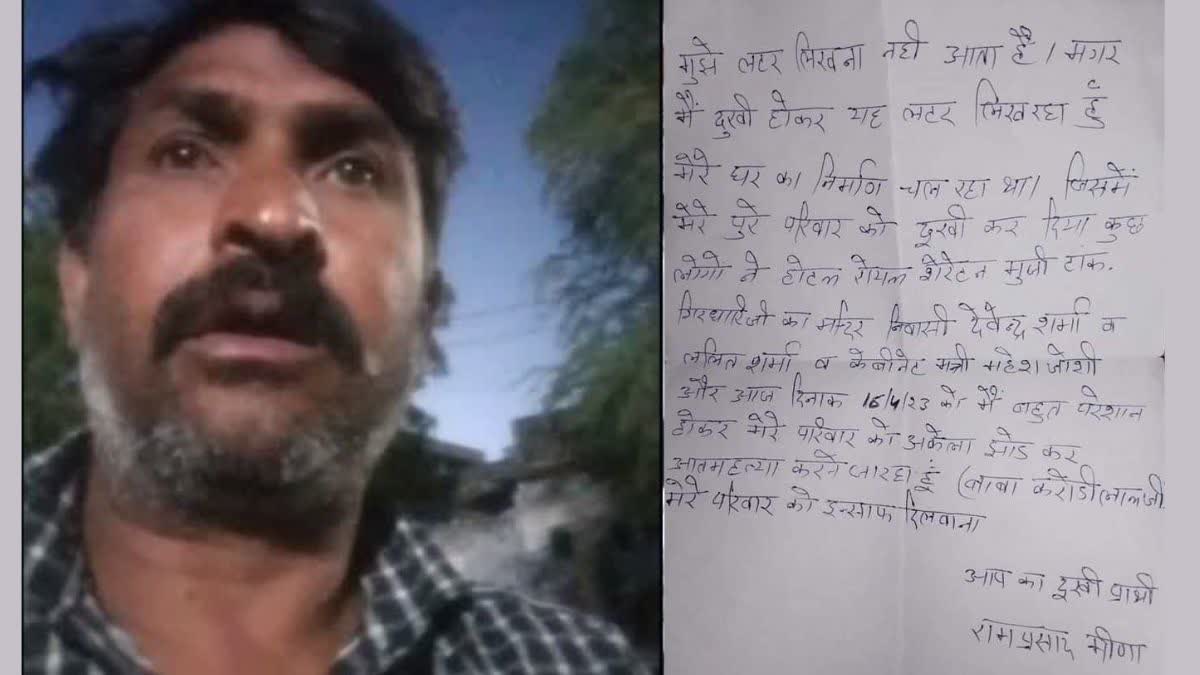 मुझे लटर लिखना नही आता है। मगर
मैं दुखी होकर यह लटर लिख रहा हुं
मेरे घर का निर्माण चल रहा था। जिसमें
मेरे पुरे परिवार को दूखी कर दिया कुछ
लोगो ने होटल रोयल शेरेटन मुजी टांक.
गिरधारिजी का मंदिर निवासी देवेन्द्र शर्मा व
ललित शर्मा व केबीनेट मन्त्री महेश जोशी
और आज दिनाक 16/4/23 को मैं बहुत परेशान
होकर मेरे परिवार को अकेला झोड कर
आतमहत्या करने जा रहा हूं (बाबा करोडी लालजी
मेरे परिवार को इन्साफ दिलवाना
आप का दूखी प्राथी
रामप्रसाद मीणा